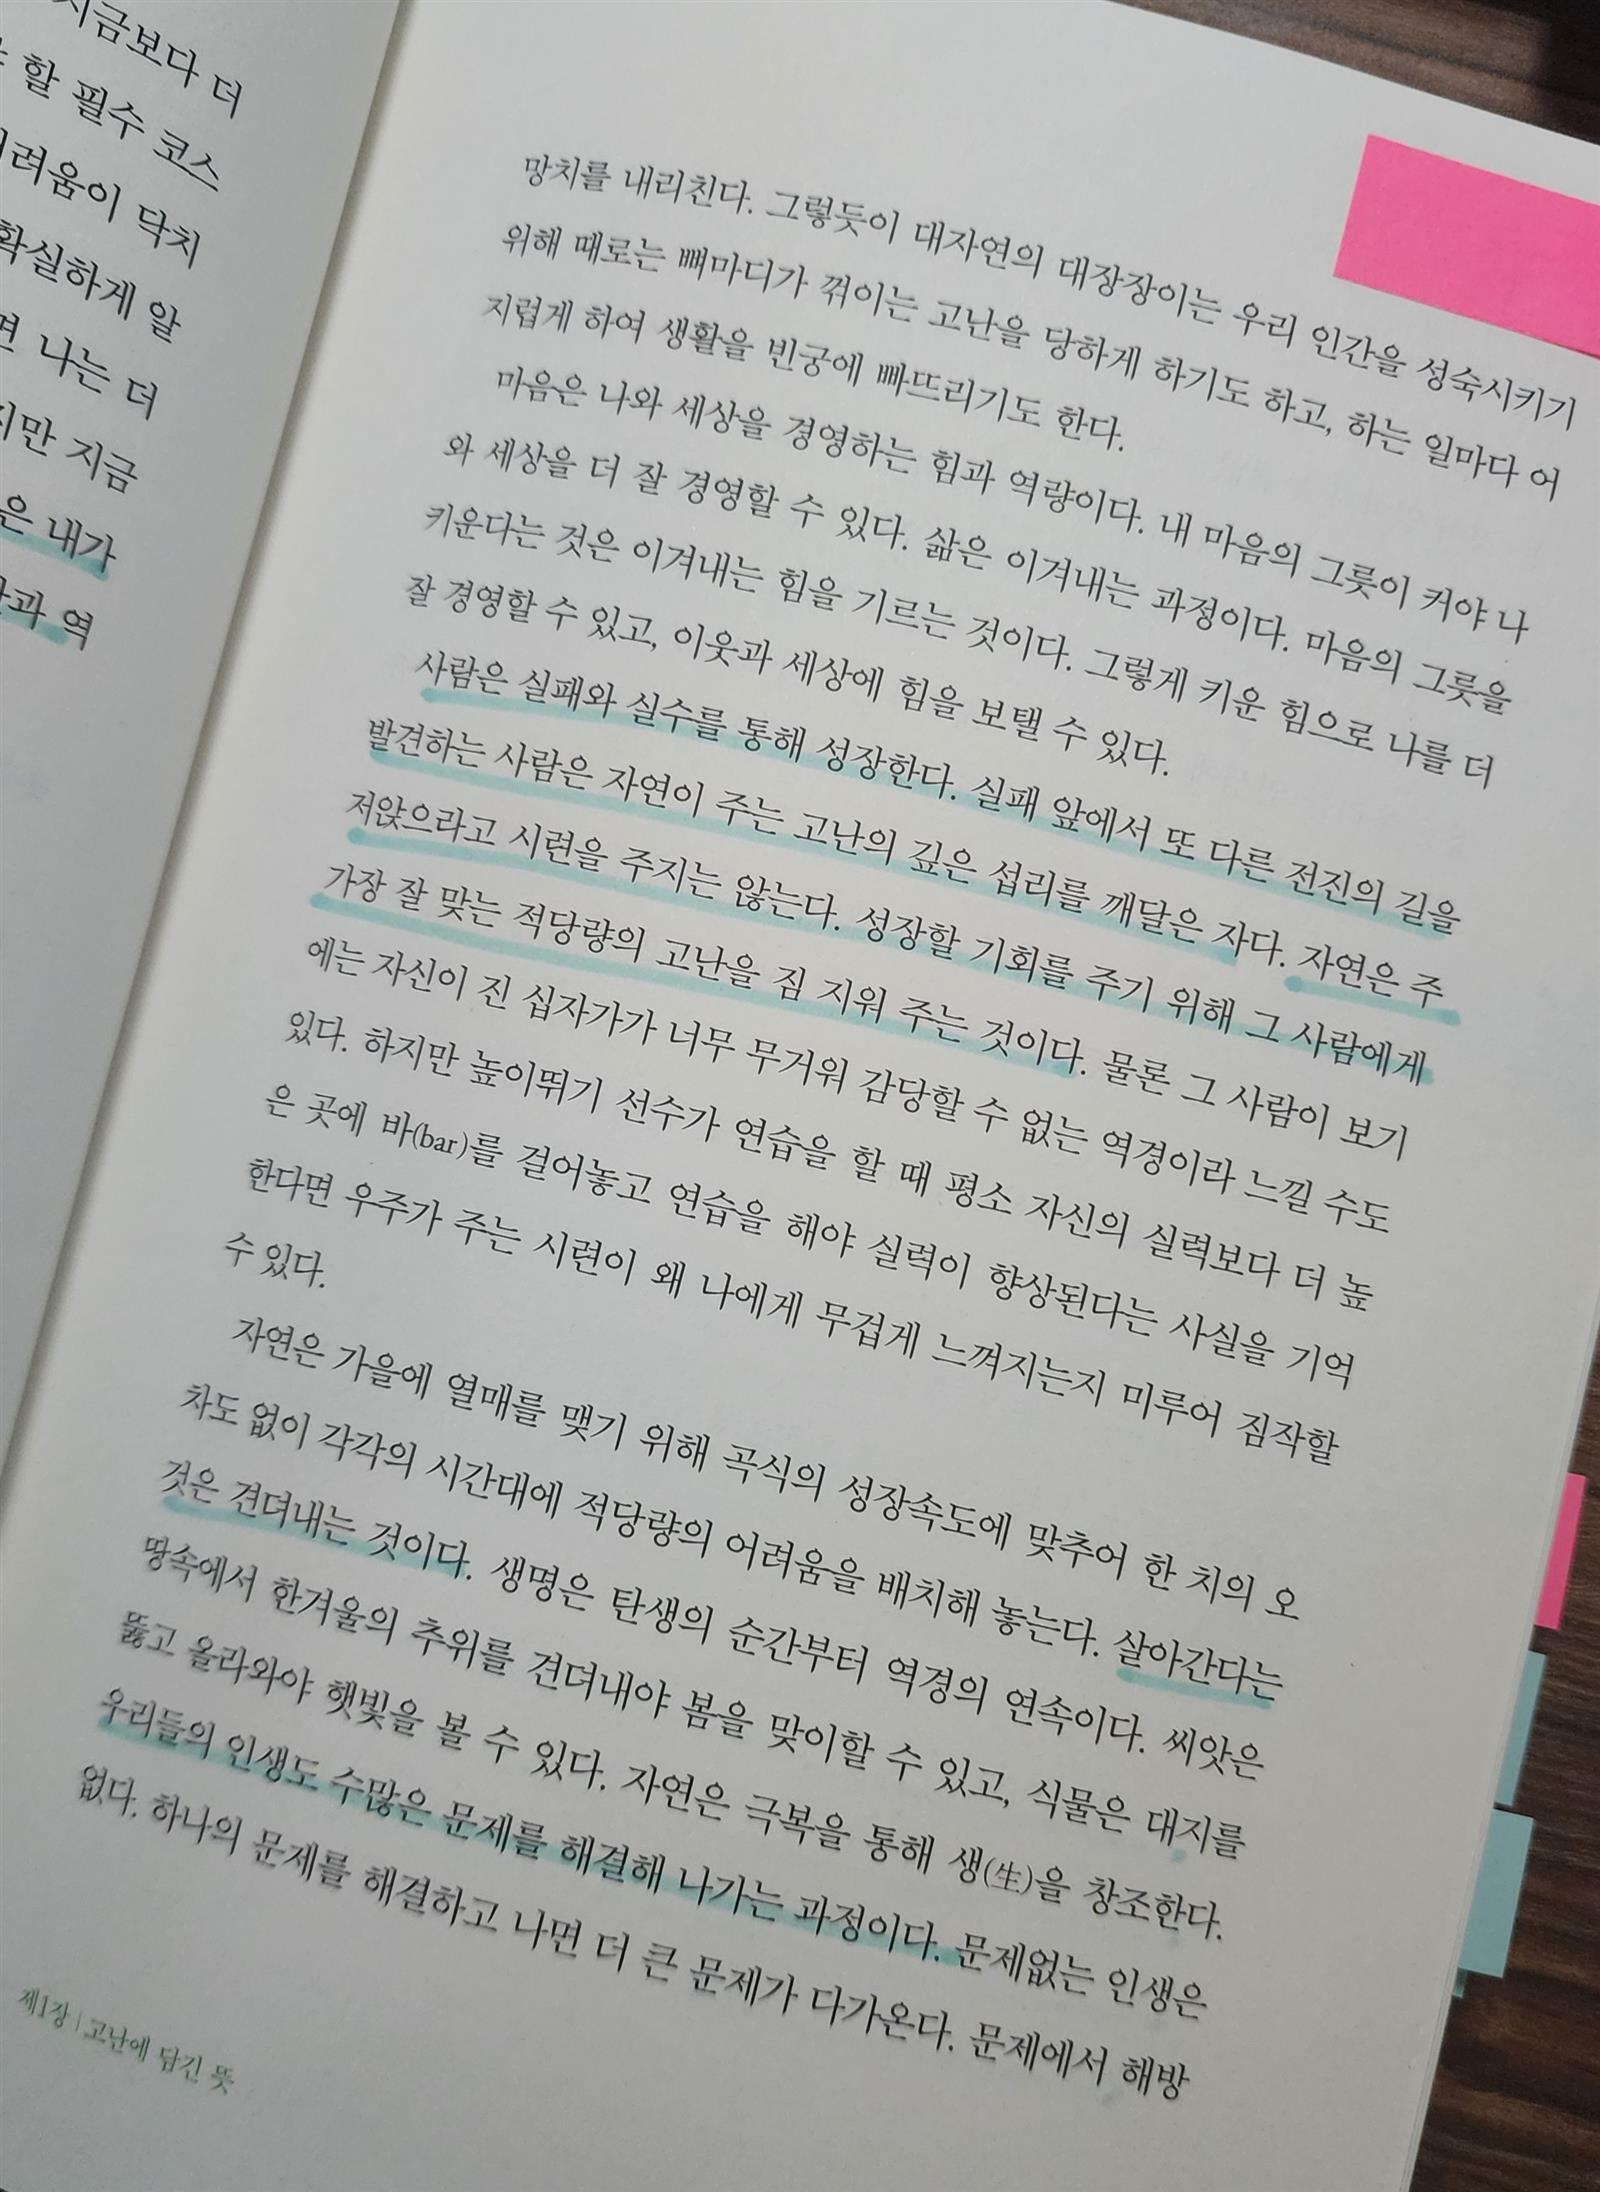 지금보다 더
할 필수 코스
려움이 닥치
확실하게 알
면 나는 더
지만 지금
은 내가
과 역
망치를 내리친다. 그렇듯이 대자연의 대장장이는 우리 인간을 성숙시키기
위해 때로는 뼈마디가 꺾이는 고난을 당하게 하기도 하고, 하는 일마다 어
지럽게 하여 생활을 빈궁에 빠뜨리기도 한다.
마음은 나와 세상을 경영하는 힘과 역량이다. 내 마음의 그릇이 커야 나
와 세상을 더 잘 경영할 수 있다. 삶은 이겨내는 과정이다. 마음의 그릇을
키운다는 것은 이겨내는 힘을 기르는 것이다. 그렇게 키운 힘으로 나를 더
잘 경영할 수 있고, 이웃과 세상에 힘을 보탤 수 있다.
사람은 실패와 실수를 통해 성장한다. 실패 앞에서 또 다른 전진의 길을
발견하는 사람은 자연이 주는 고난의 깊은 섭리를 깨달은 자다. 자연은 주
저앉으라고 시련을 주지는 않는다. 성장할 기회를 주기 위해 그 사람에게
가장 잘 맞는 적당량의 고난을 짐 지워 주는 것이다. 물론 그 사람이 보기
에는 자신이 진 십자가가 너무 무거워 감당할 수 없는 역경이라 느낄 수도
있다. 하지만 높이뛰기 선수가 연습을 할 때 평소 자신의 실력보다 더 높
은 곳에 바(bar)를 걸어놓고 연습을 해야 실력이 향상된다는 사실을 기억
한다면 우주가 주는 시련이 왜 나에게 무겁게 느껴지는지 미루어 짐작할
수 있다.
자연은 가을에 열매를 맺기 위해 곡식의 성장속도에 맞추어 한 치의 오
차도 없이 각각의 시간대에 적당량의 어려움을 배치해 놓는다. 살아간다는
것은 견뎌내는 것이다. 생명은 탄생의 순간부터 역경의 연속이다. 씨앗은
땅속에서 한겨울의 추위를 견뎌내야 봄을 맞이할 수 있고, 식물은 대지를
뚫고 올라와야 햇빛을 볼 수 있다. 자연은 극복을 통해 생(生)을 창조한다.
우리들의 인생도 수많은 문제를 해결해 나가는 과정이다. 문제없는 인생은
없다. 하나의 문제를 해결하고 나면 더 큰 문제가 다가온다. 문제에서 해방
제1장 | 고난에 담긴 뜻